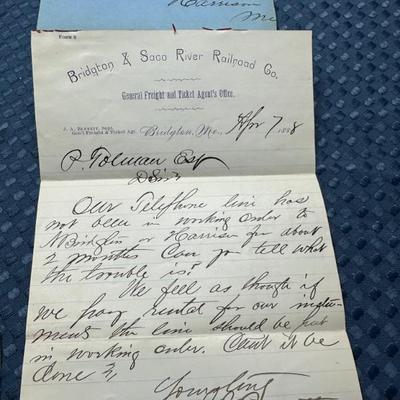 Harrison
Me
Form 8
Bridgton & Saco River Railroad Co.
General Freight and Ticket Agent's Office.
J. A. Bennett, Supt.
Gen'l Freight & Ticket Agt.
Bridgton, Me., Apr 7 1888
P. Tolman Esq
D Sir
Our Telephone line has
not been in working order to
N Bridgton or Harrison for about
2 months Can you tell what
the trouble is?
We feel as though if
we pay rental for our instru-
ments the line should be put
in working order. Can't it be
done?
Yours truly